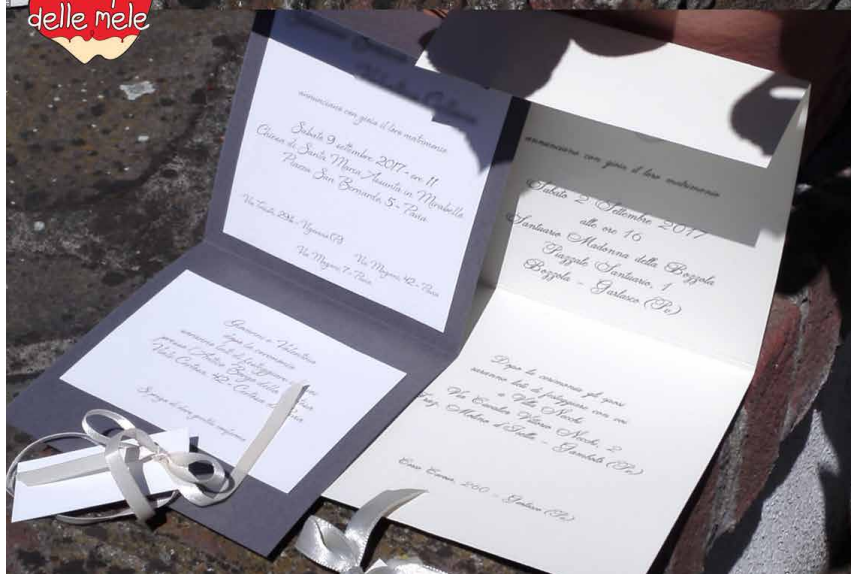 delle mele
annunciano con gioia il loro matrimonio
Sabato 9 settembre 2017 - ore 11
Chiesa di Santa Maria Assunta in Mirabello
Piazza San Bernardo, 5 - Pavia
Via Mugnai, 42 - Pavia
Via Mugnai, 7 - Pavia
Giovanni e Valentina
dopo la cerimonia
saranno lieti di festeggiare
presso l'Antico Borgo della
Viale Certosa, 42 - Certosa di Pavia
Si prega di dare gentile conferma
annunciano con gioia il loro matrimonio
Sabato 2 Settembre 2017
alle ore 16
Santuario Madonna della Bozzola
Piazzale Santuario, 1
Bozzola - Garlasco (Pv)
Dopo la cerimonia gli sposi
saranno lieti di festeggiare con voi
a Villa Necchi
Via Cavalier Vittorio Necchi, 2
Molino d'Isella - Gambolò (Pv)
Corso Cavour, 260 - Garlasco (Pv)